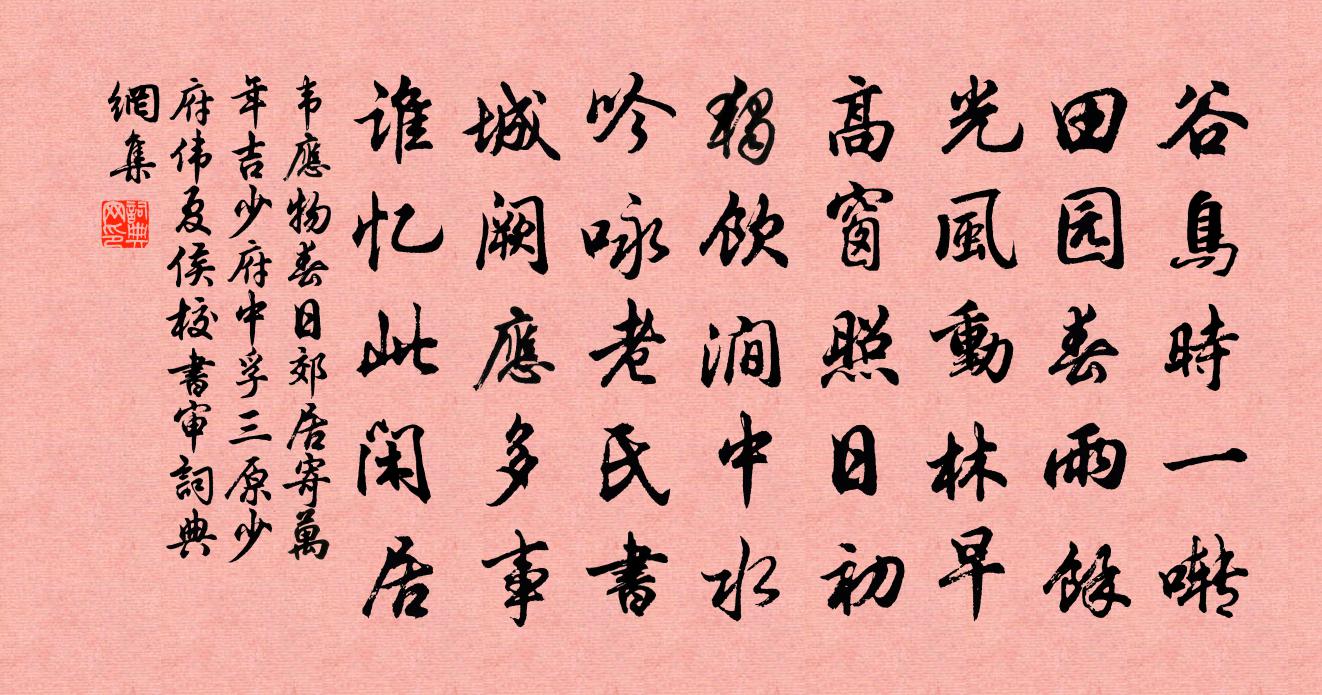 谷鳥時一囀
田园春雨餘
光風動林早
高窗照日初
獨飲澗中水
吟咏老氏書
城阙應多事
谁忆此闲居
韦應物春日郊居寄萬
年吉少府中孚三原少
府伟夏侯校書审詞典
網集
詞典网印